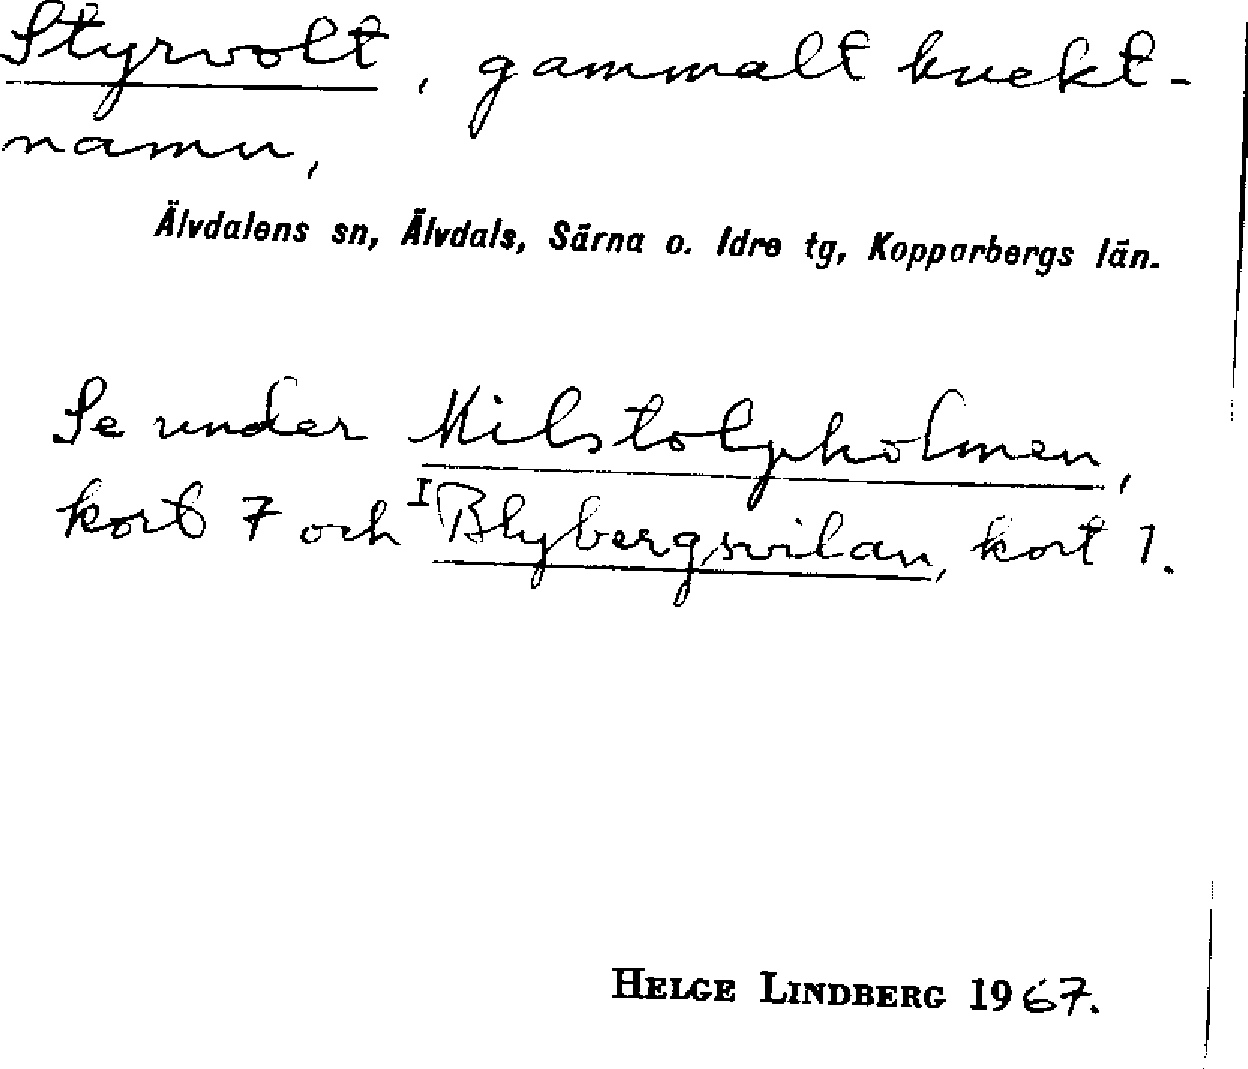 Styrvolt, gammalt knekt-
namn,
Älvdalens sn, Älvdals, Särna o. Idre tg, Kopparbergs län.
Se under Milstolpholmen,
kort 7 och I Blybergsvilan, kort 1.
HELGE LINDBERG 1967.